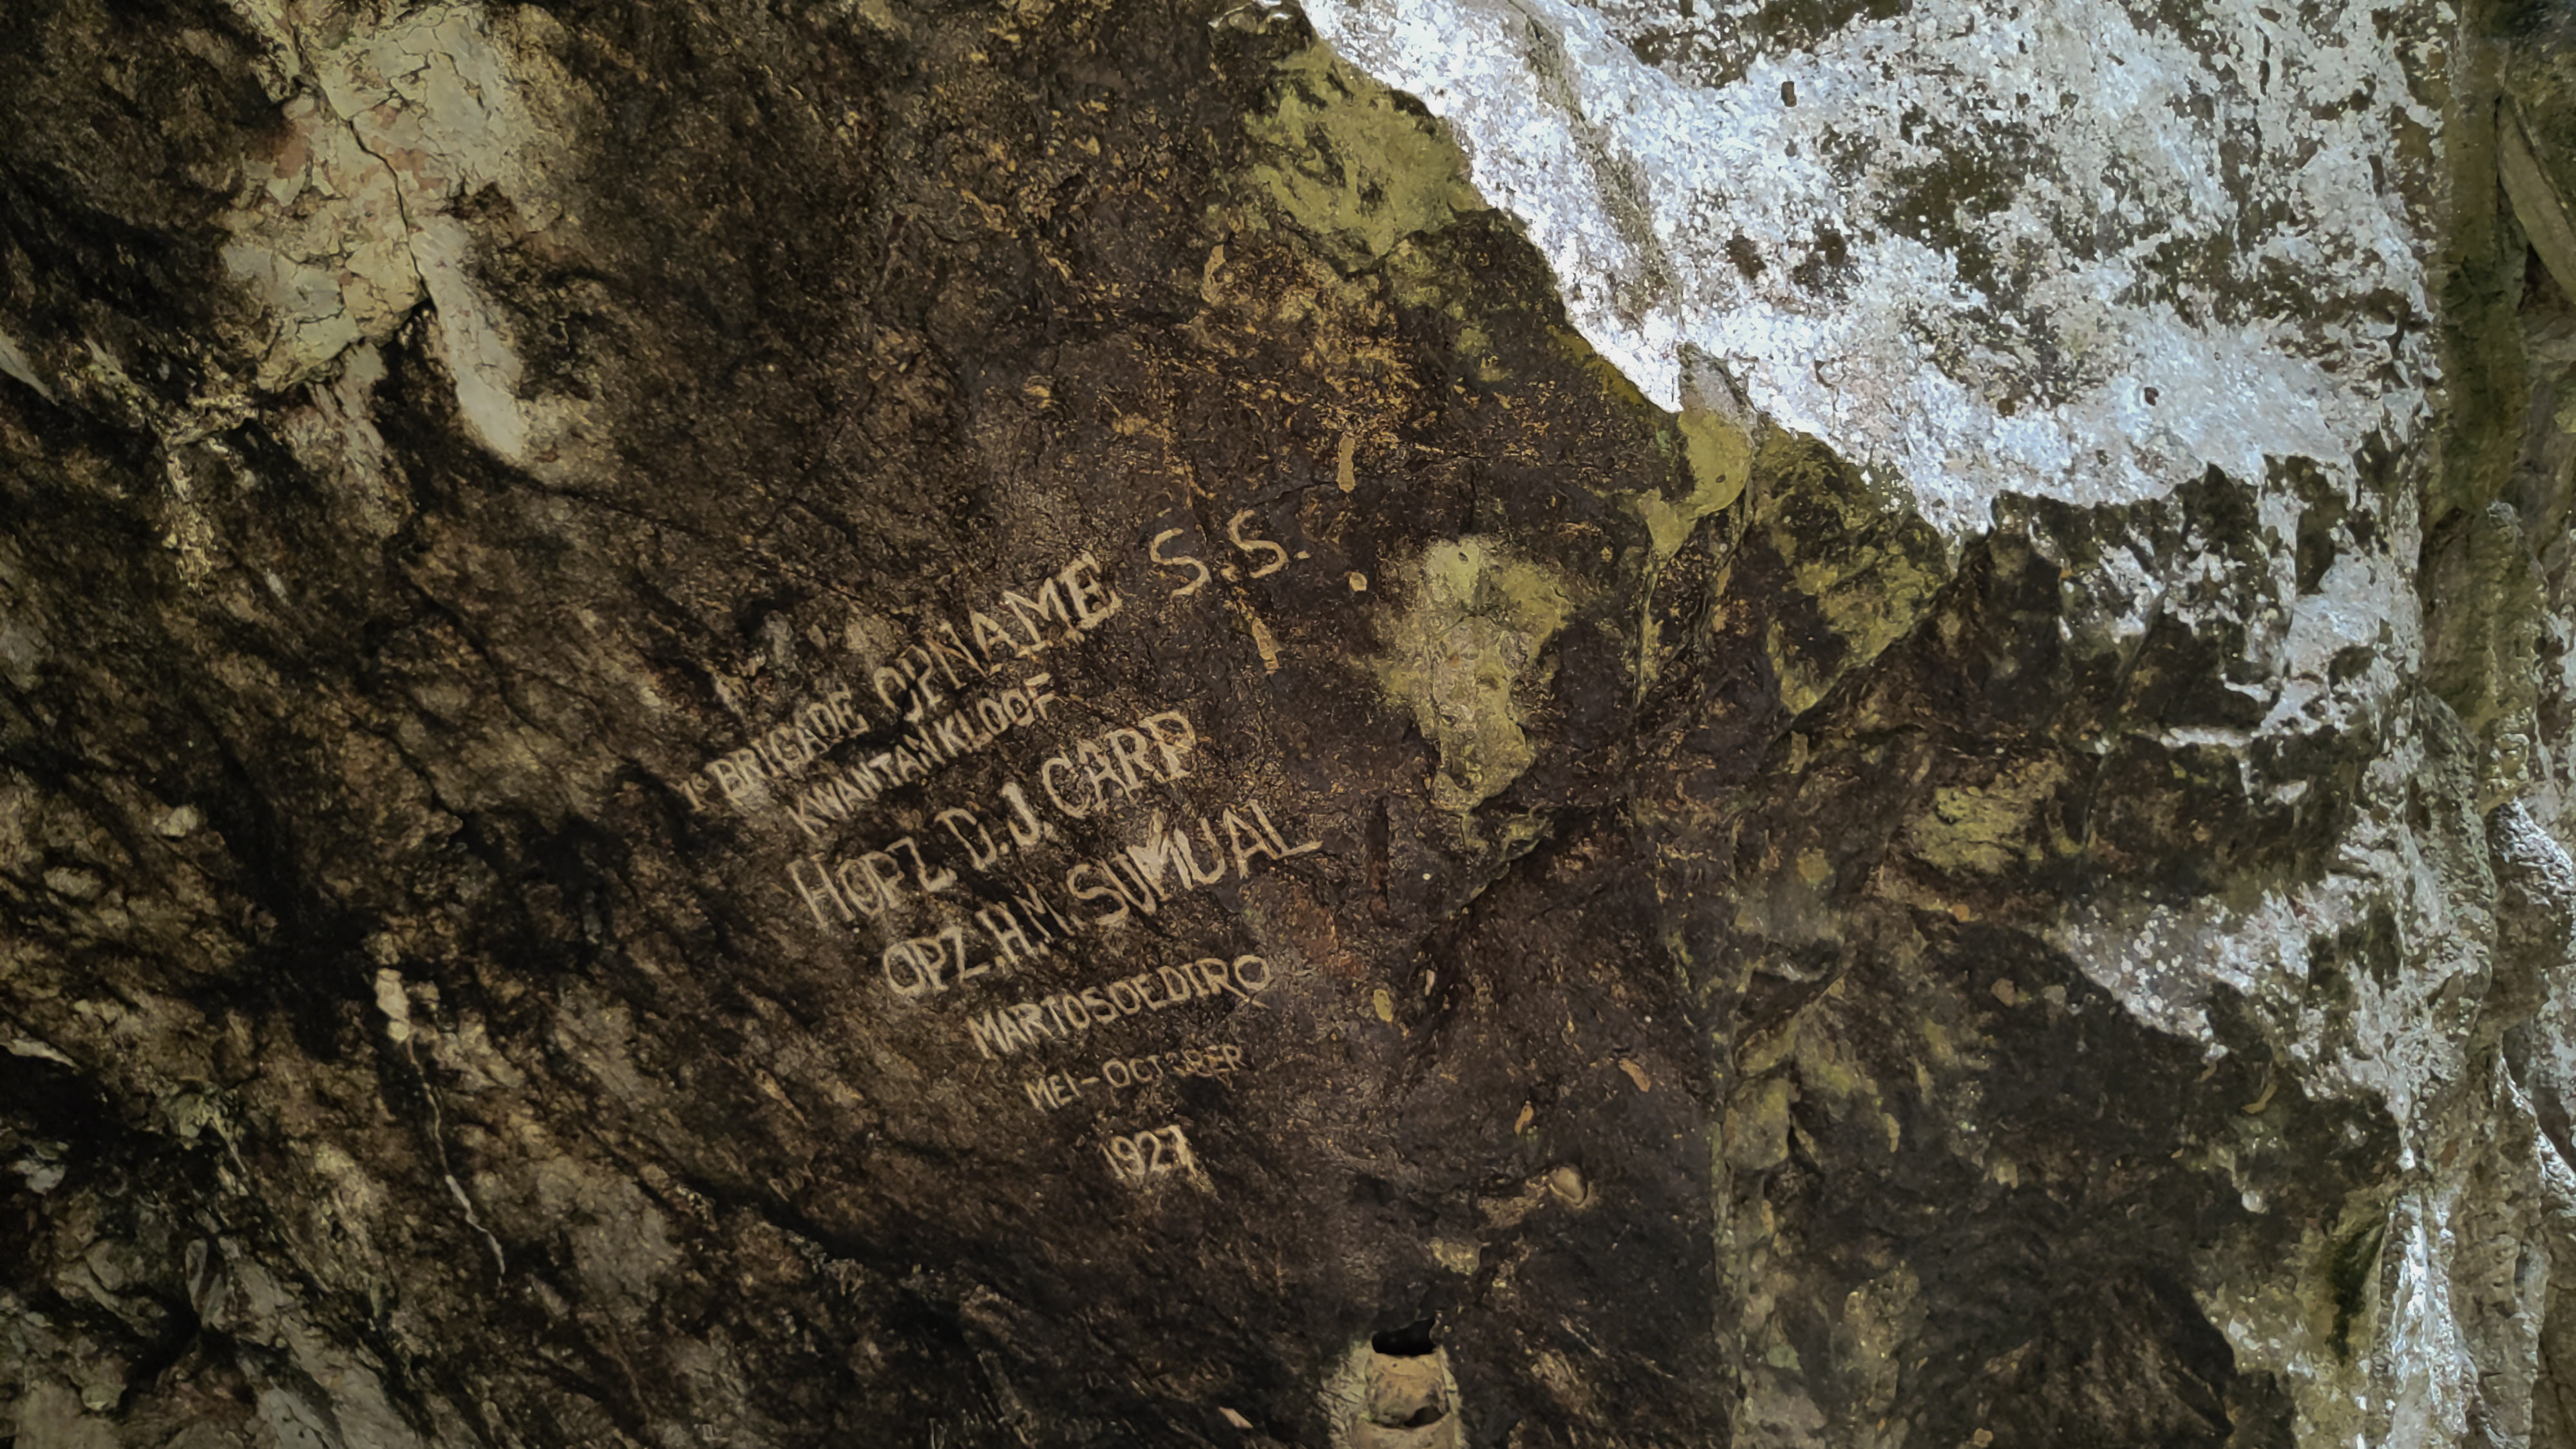 1e BRIGADE OPNAME S.S.
KWANTANKLOOF
HOPZ D.J. CARP
OPZ. H.M. SUMUAL
MARTOSOEDIRO
MEI-OCTOBER
1927